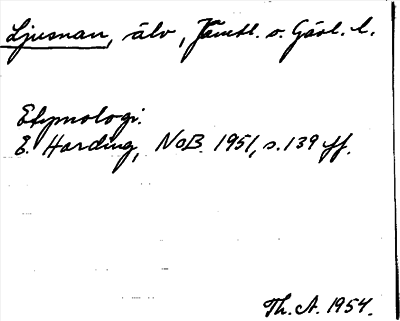 Ljusnan, älv, Jämtl. o. Gävl. l.
Etymologi:
E. Harding, NoB. 1951, s. 139 ff.
Th. A. 1954.